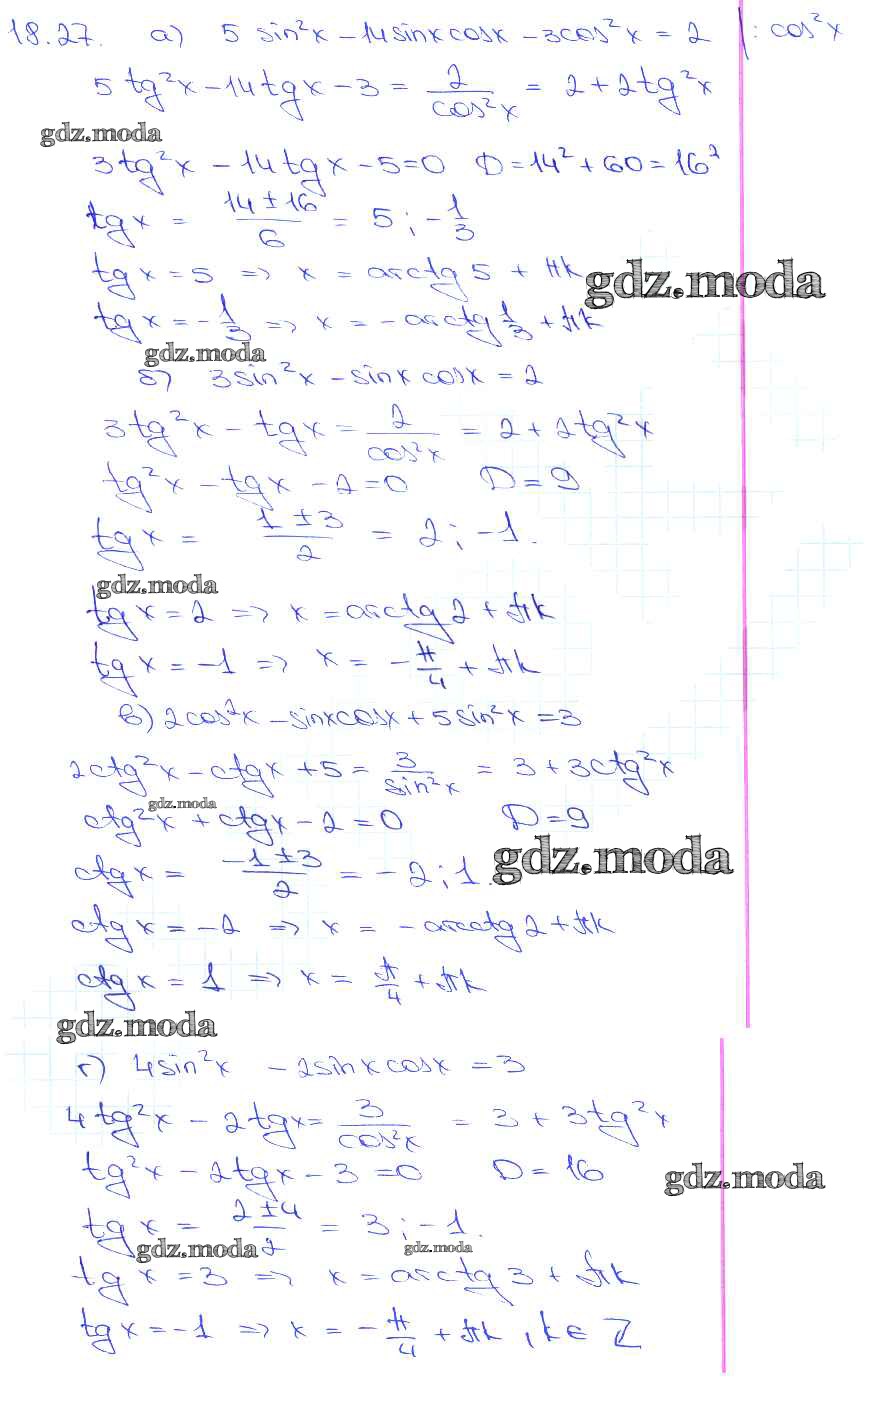 18.27. а) 5 sin²x - 14 sinx cosx - 3cos²x = 2 | : cos²x
5 tg²x - 14 tgx - 3 = 2/cos²x = 2 + 2tg²x
gdz.moda
3tg²x - 14 tgx - 5 = 0 D = 14² + 60 = 16²
tgx = (14 ± 16)/6 = 5 ; -1/3
tgx = 5 => x = arctg 5 + πk
gdz.moda
tgx = -1/3 => x = -arctg 1/3 + πk
gdz.moda
б) 3sin²x - sinx cosx = 2
3tg²x - tgx = 2/cos²x = 2 + 2tg²x
tg²x - tgx - 2 = 0 D = 9
tgx = (1 ± 3)/2 = 2 ; -1.
gdz.moda
tgx = 2 => x = arctg 2 + πk
tgx = -1 => x = -π/4 + πk
в) 2cos²x - sinxcosx + 5sin²x = 3
2ctg²x - ctgx + 5 = 3/sin²x = 3 + 3ctg²x
gdz.moda
ctg²x + ctgx - 2 = 0 D = 9
gdz.moda
ctgx = (-1 ± 3)/2 = -2 ; 1.
ctgx = -2 => x = -arcctg 2 + πk
ctgx = 1 => x = π/4 + πk
gdz.moda
г) 4sin²x - 2sinx cosx = 3
4tg²x - 2tgx = 3/cos²x = 3 + 3tg²x
tg²x - 2tgx - 3 = 0 D = 16
gdz.moda
tgx = (2 ± 4)/2 = 3 ; -1.
gdz.moda gdz.moda
tgx = 3 => x = arctg 3 + πk
tgx = -1 => x = -π/4 + πk , k ∈ Z